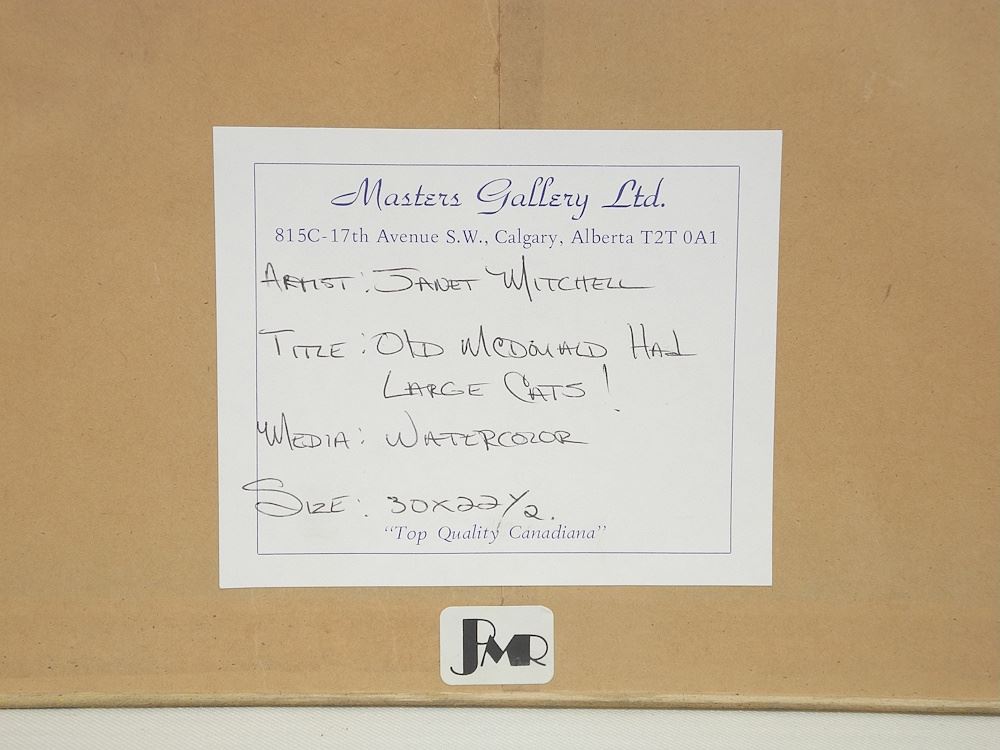 Masters Gallery Ltd.
815C-17th Avenue S.W., Calgary, Alberta T2T 0A1
ARTIST: JANET MITCHELL
TITLE: OLD MCDONALD HAD
LARGE CATS!
MEDIA: WATERCOLOR
SIZE: 30X22 1/2.
“Top Quality Canadiana”
JPMR